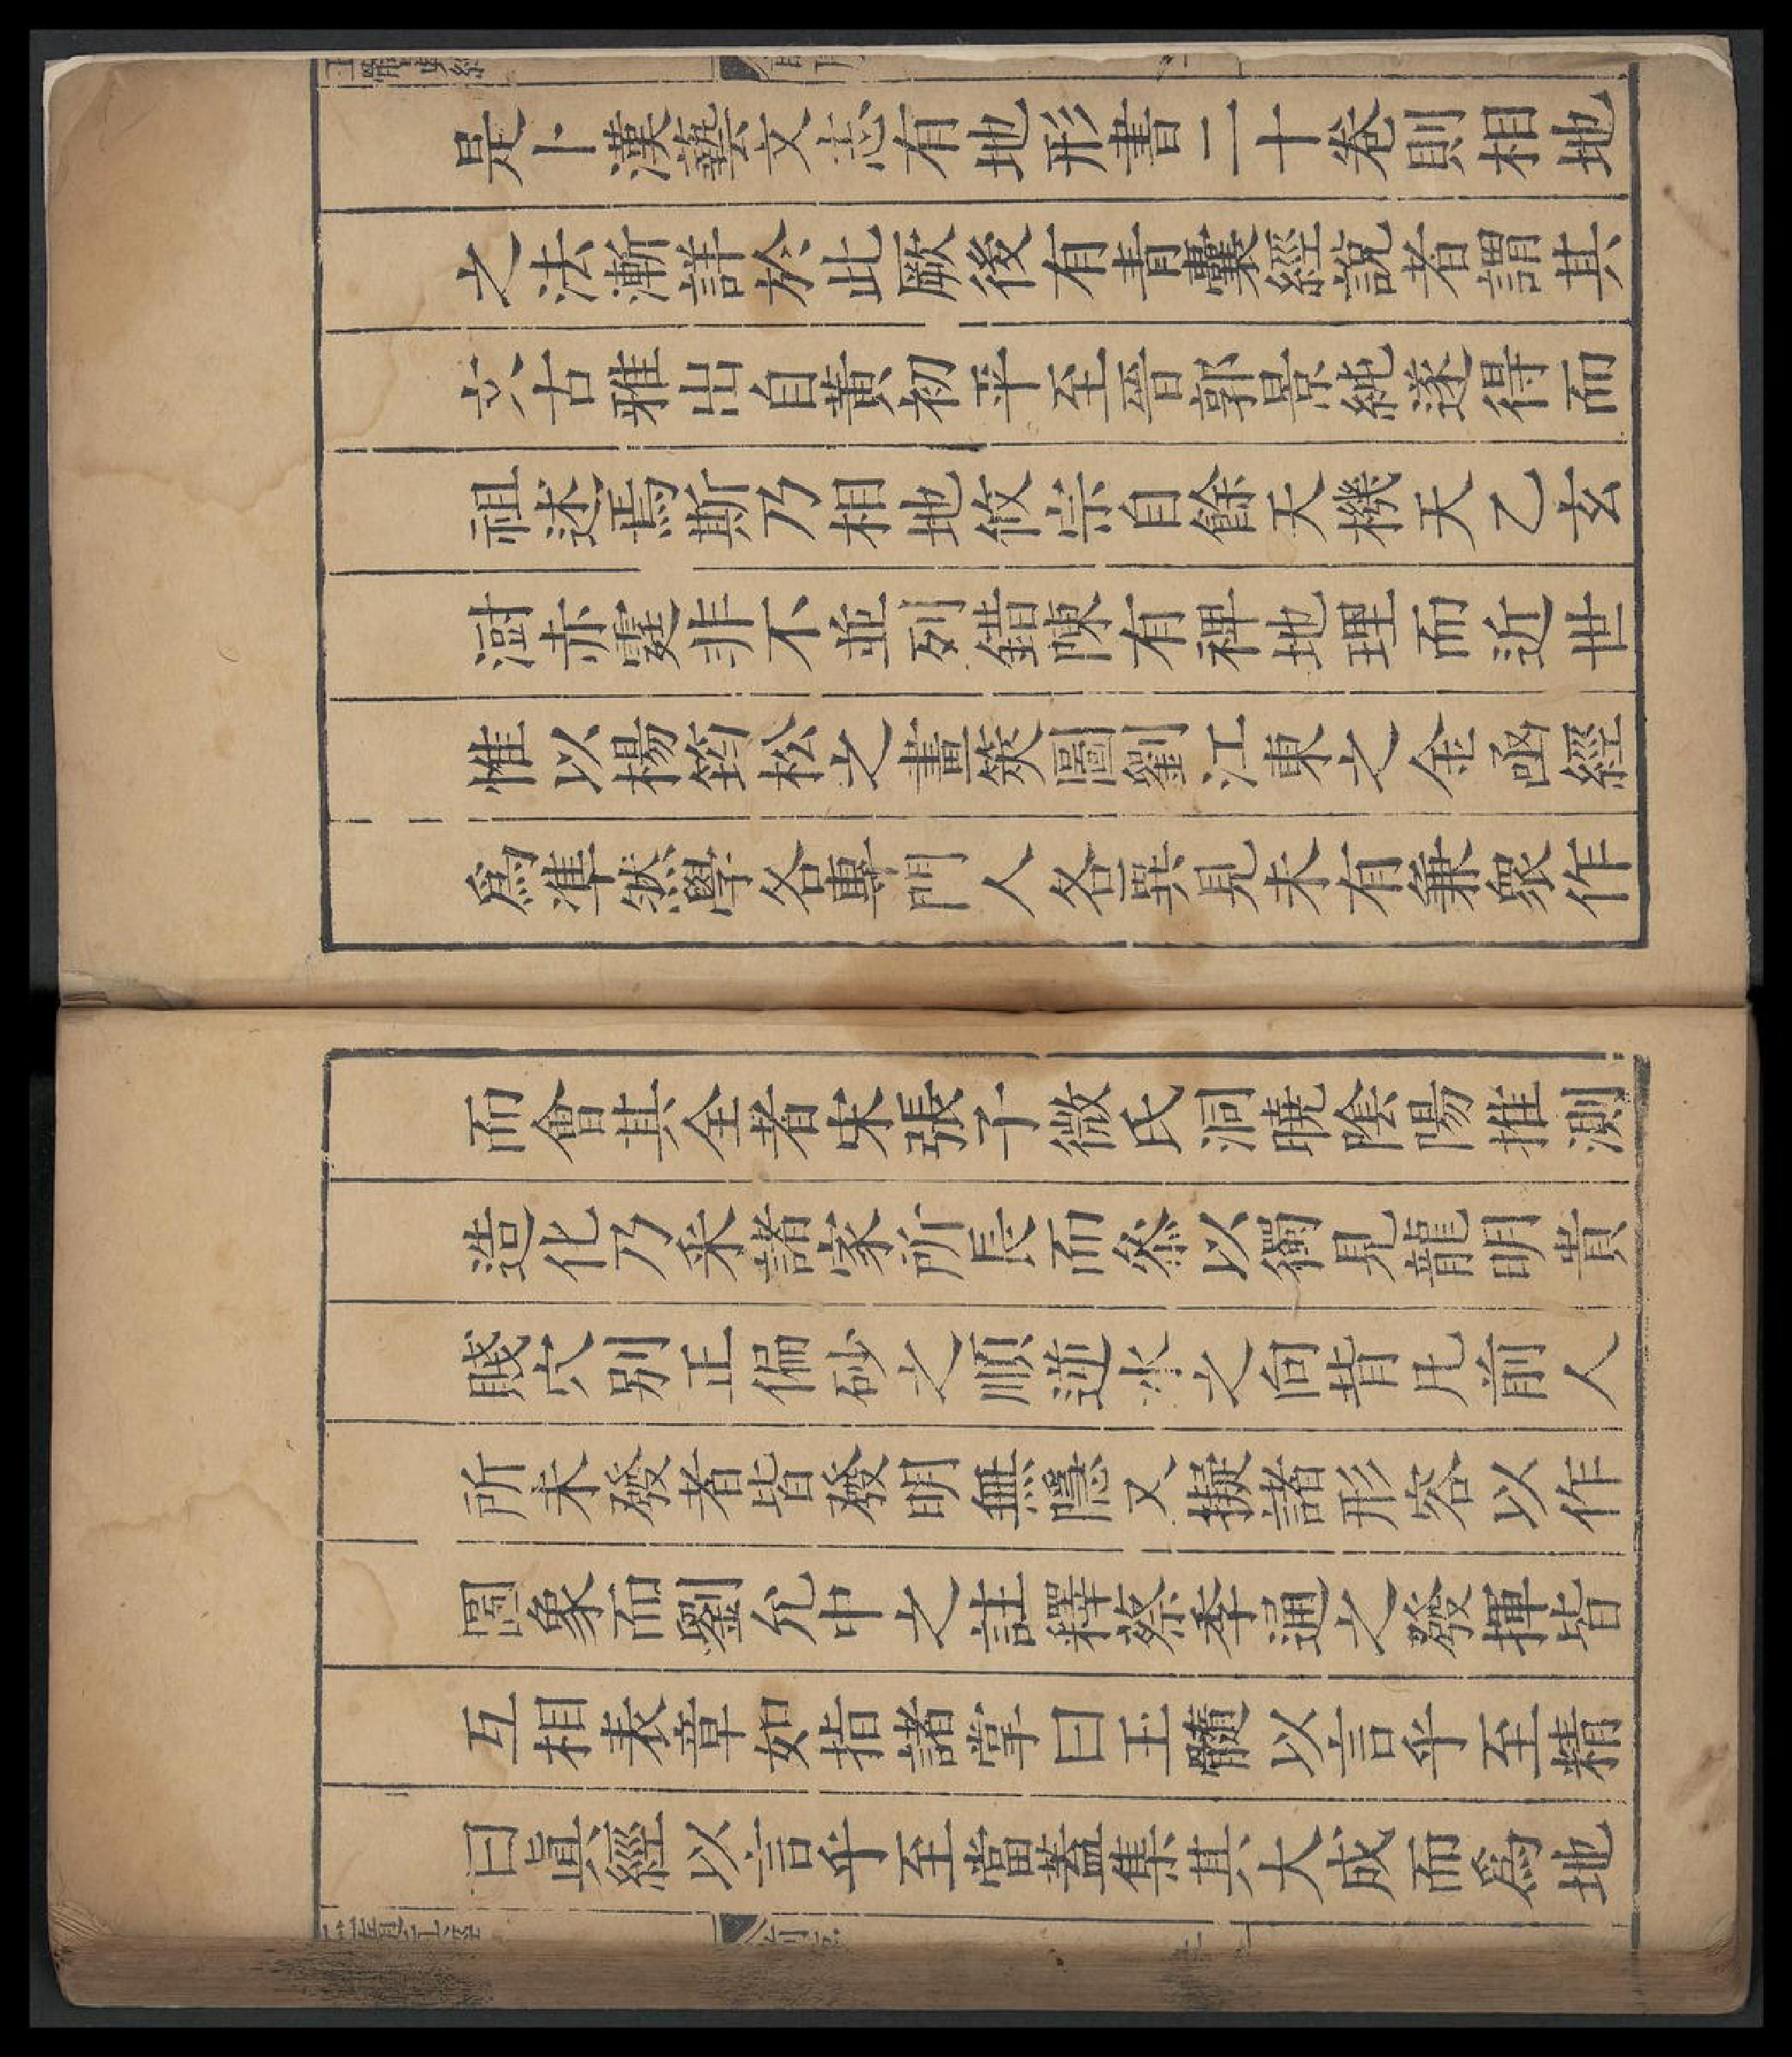 是卜漢藝文志有地形書二十卷則相地
之法漸詳於此厥後有青囊經說者謂其
文古雅出自黃初平至晉郭景純遂得而
祖述焉斯乃相地攸宗自餘天機天乙玄
澍赤霆非不並列錯陳有裨地理而近世
惟以楊筠松之畫筴圖劉江東之金函經
爲準然學各專門人各異見未有兼衆作
而會其全者宋張子微氏洞曉陰陽推測
造化乃采諸家所長而叅以獨見龍明貴
賤穴別正偏砂之順逆水之向背凡前人
所未發者皆發明無隱又擬諸形容以作
圖象而劉允中之註釋蔡季通之發揮皆
互相表章如指諸掌曰玉髓以言乎至精
曰眞經以言乎至當蓋集其大成而爲地